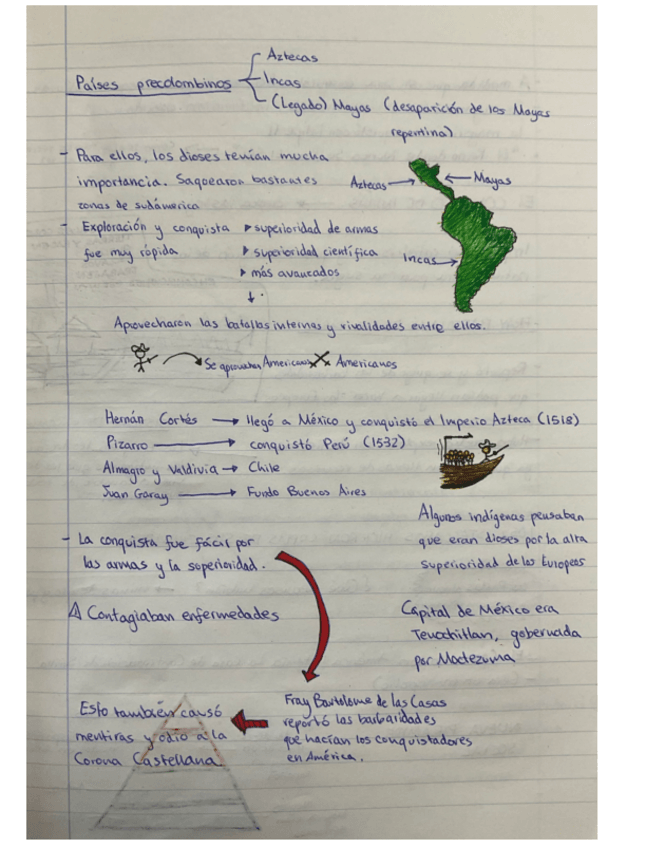 Aztecas
Países precolombinos
Incas
(Legado) Mayas (desaparición de los Mayas
repentina)
- Para ellos, los dioses tenían mucha
importancia. Saqoearon bastantes
zonas de sudámerica
Aztecas
Mayas
Incas
- Exploración y conquista
fue muy rápida
superioridad de armas
superioridad científica
más avanzados
Aprovecharon las batallas internas y rivalidades entre ellos.
Se aprovaban Americanos X Americanos
Hernán Cortés → llegó a México y conquistó el Imperio Azteca (1518)
Pizarro → conquistó Perú (1532)
Almagro y Valdivia → Chile
Juan Garay → Fundo Buenos Aires
Algunos indígenas pensaban
que eran dioses por la alta
superioridad de los Europeos
- La conquista fue fácil por
las armas y la superioridad.
Contagiaban enfermedades
Capital de México era
Tenochitlan, gobernada
por Moctezuma
Fray Bartolome de las Casas
reportó las barbaridades
que hacían los conquistadores
en América.
Esto también causó
mentiras y odio a la
Corona Castellana